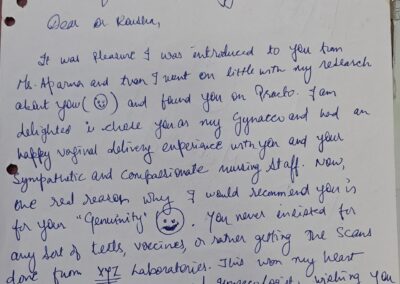 Dear Dr Raksha,
It was pleasure I was introduced to you from
Ms. Aparna and then I went on little with my research
about you (☺) and found you on Practo. I am
delighted I chose you as my Gynaec and had an
happy vaginal delivery experience with you and your
Sympathetic and Compassionate nursing staff. Now,
one real reason why I would recommend you is
for your "Genuinity" ☺. You never insisted for
any sort of tests, vaccines, or rather getting the Scans
done from XYZ Laboratories. This won my heart
gynaecologist, wishing you